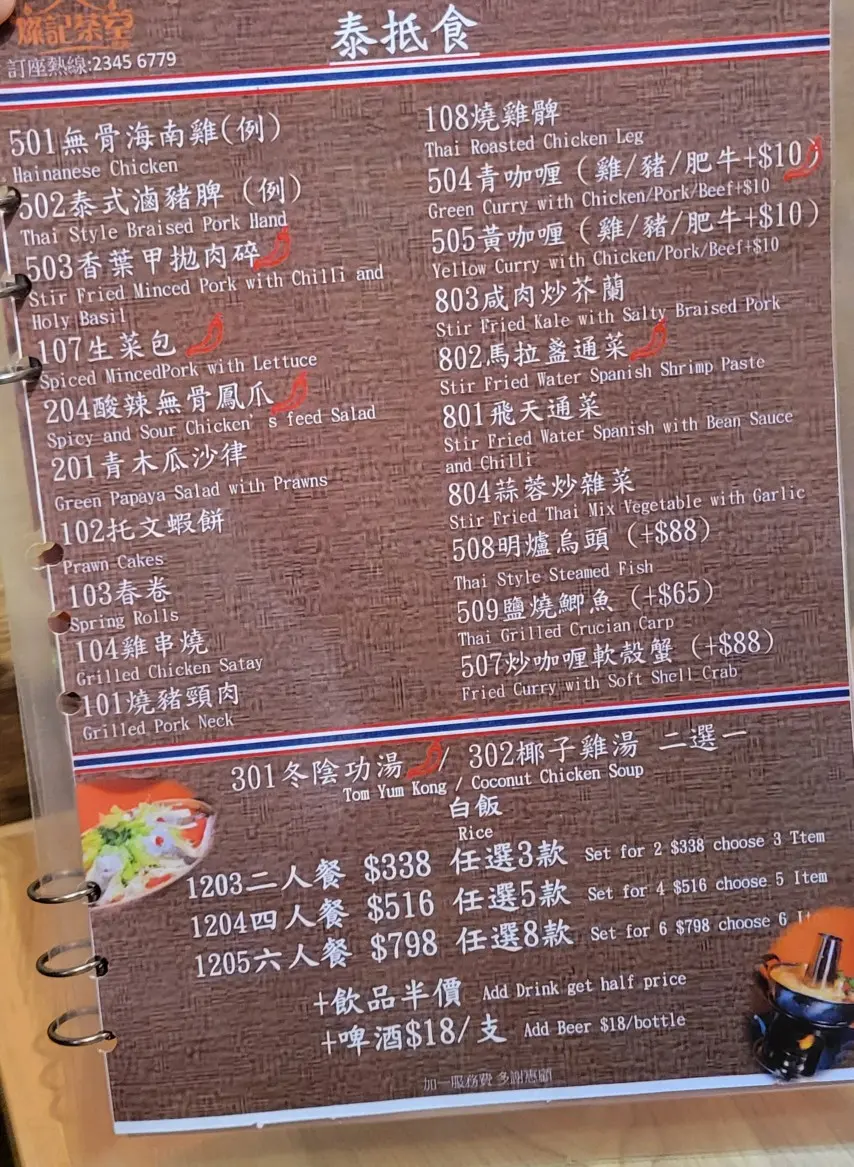 燦記茶室
訂座熱線:2345 6779
泰抵食
501無骨海南雞(例)
Hainanese Chicken
502泰式滷豬脾 (例)
Thai Style Braised Pork Hand
503香葉甲拋肉碎
Stir Fried Minced Pork with Chilli and
Holy Basil
107生菜包
Spiced MincedPork with Lettuce
204酸辣無骨鳳爪
Spicy and Sour Chicken's feed Salad
201青木瓜沙律
Green Papaya Salad with Prawns
102托文蝦餅
Prawn Cakes
103春卷
Spring Rolls
104雞串燒
Grilled Chicken Satay
101燒豬頸肉
Grilled Pork Neck
108燒雞髀
Thai Roasted Chicken Leg
504青咖喱 (雞/豬/肥牛+$10)
Green Curry with Chicken/Pork/Beef+$10
505黃咖喱 (雞/豬/肥牛+$10)
Yellow Curry with Chicken/Pork/Beef+$10
803咸肉炒芥蘭
Stir Fried Kale with Salty Braised Pork
802馬拉盞通菜
Stir Fried Water Spanish Shrimp Paste
801飛天通菜
Stir Fried Water Spanish with Bean Sauce
and Chilli
804蒜蓉炒雜菜
Stir Fried Thai Mix Vegetable with Garlic
508明爐烏頭 (+$88)
Thai Style Steamed Fish
509鹽燒鯽魚 (+$65)
Thai Grilled Crucian Carp
507炒咖喱軟殼蟹 (+$88)
Fried Curry with Soft Shell Crab
301冬陰功湯 / 302椰子雞湯 二選一
Tom Yum Kong / Coconut Chicken Soup
白飯
Rice
1203二人餐 $338 任選3款 Set for 2 $338 choose 3 Ttem
1204四人餐 $516 任選5款 Set for 4 $516 choose 5 Item
1205六人餐 $798 任選8款 Set for 6 $798 choose 6
+飲品半價 Add Drink get half price
+啤酒$18/支 Add Beer $18/bottle
加一服務費 多謝惠顧